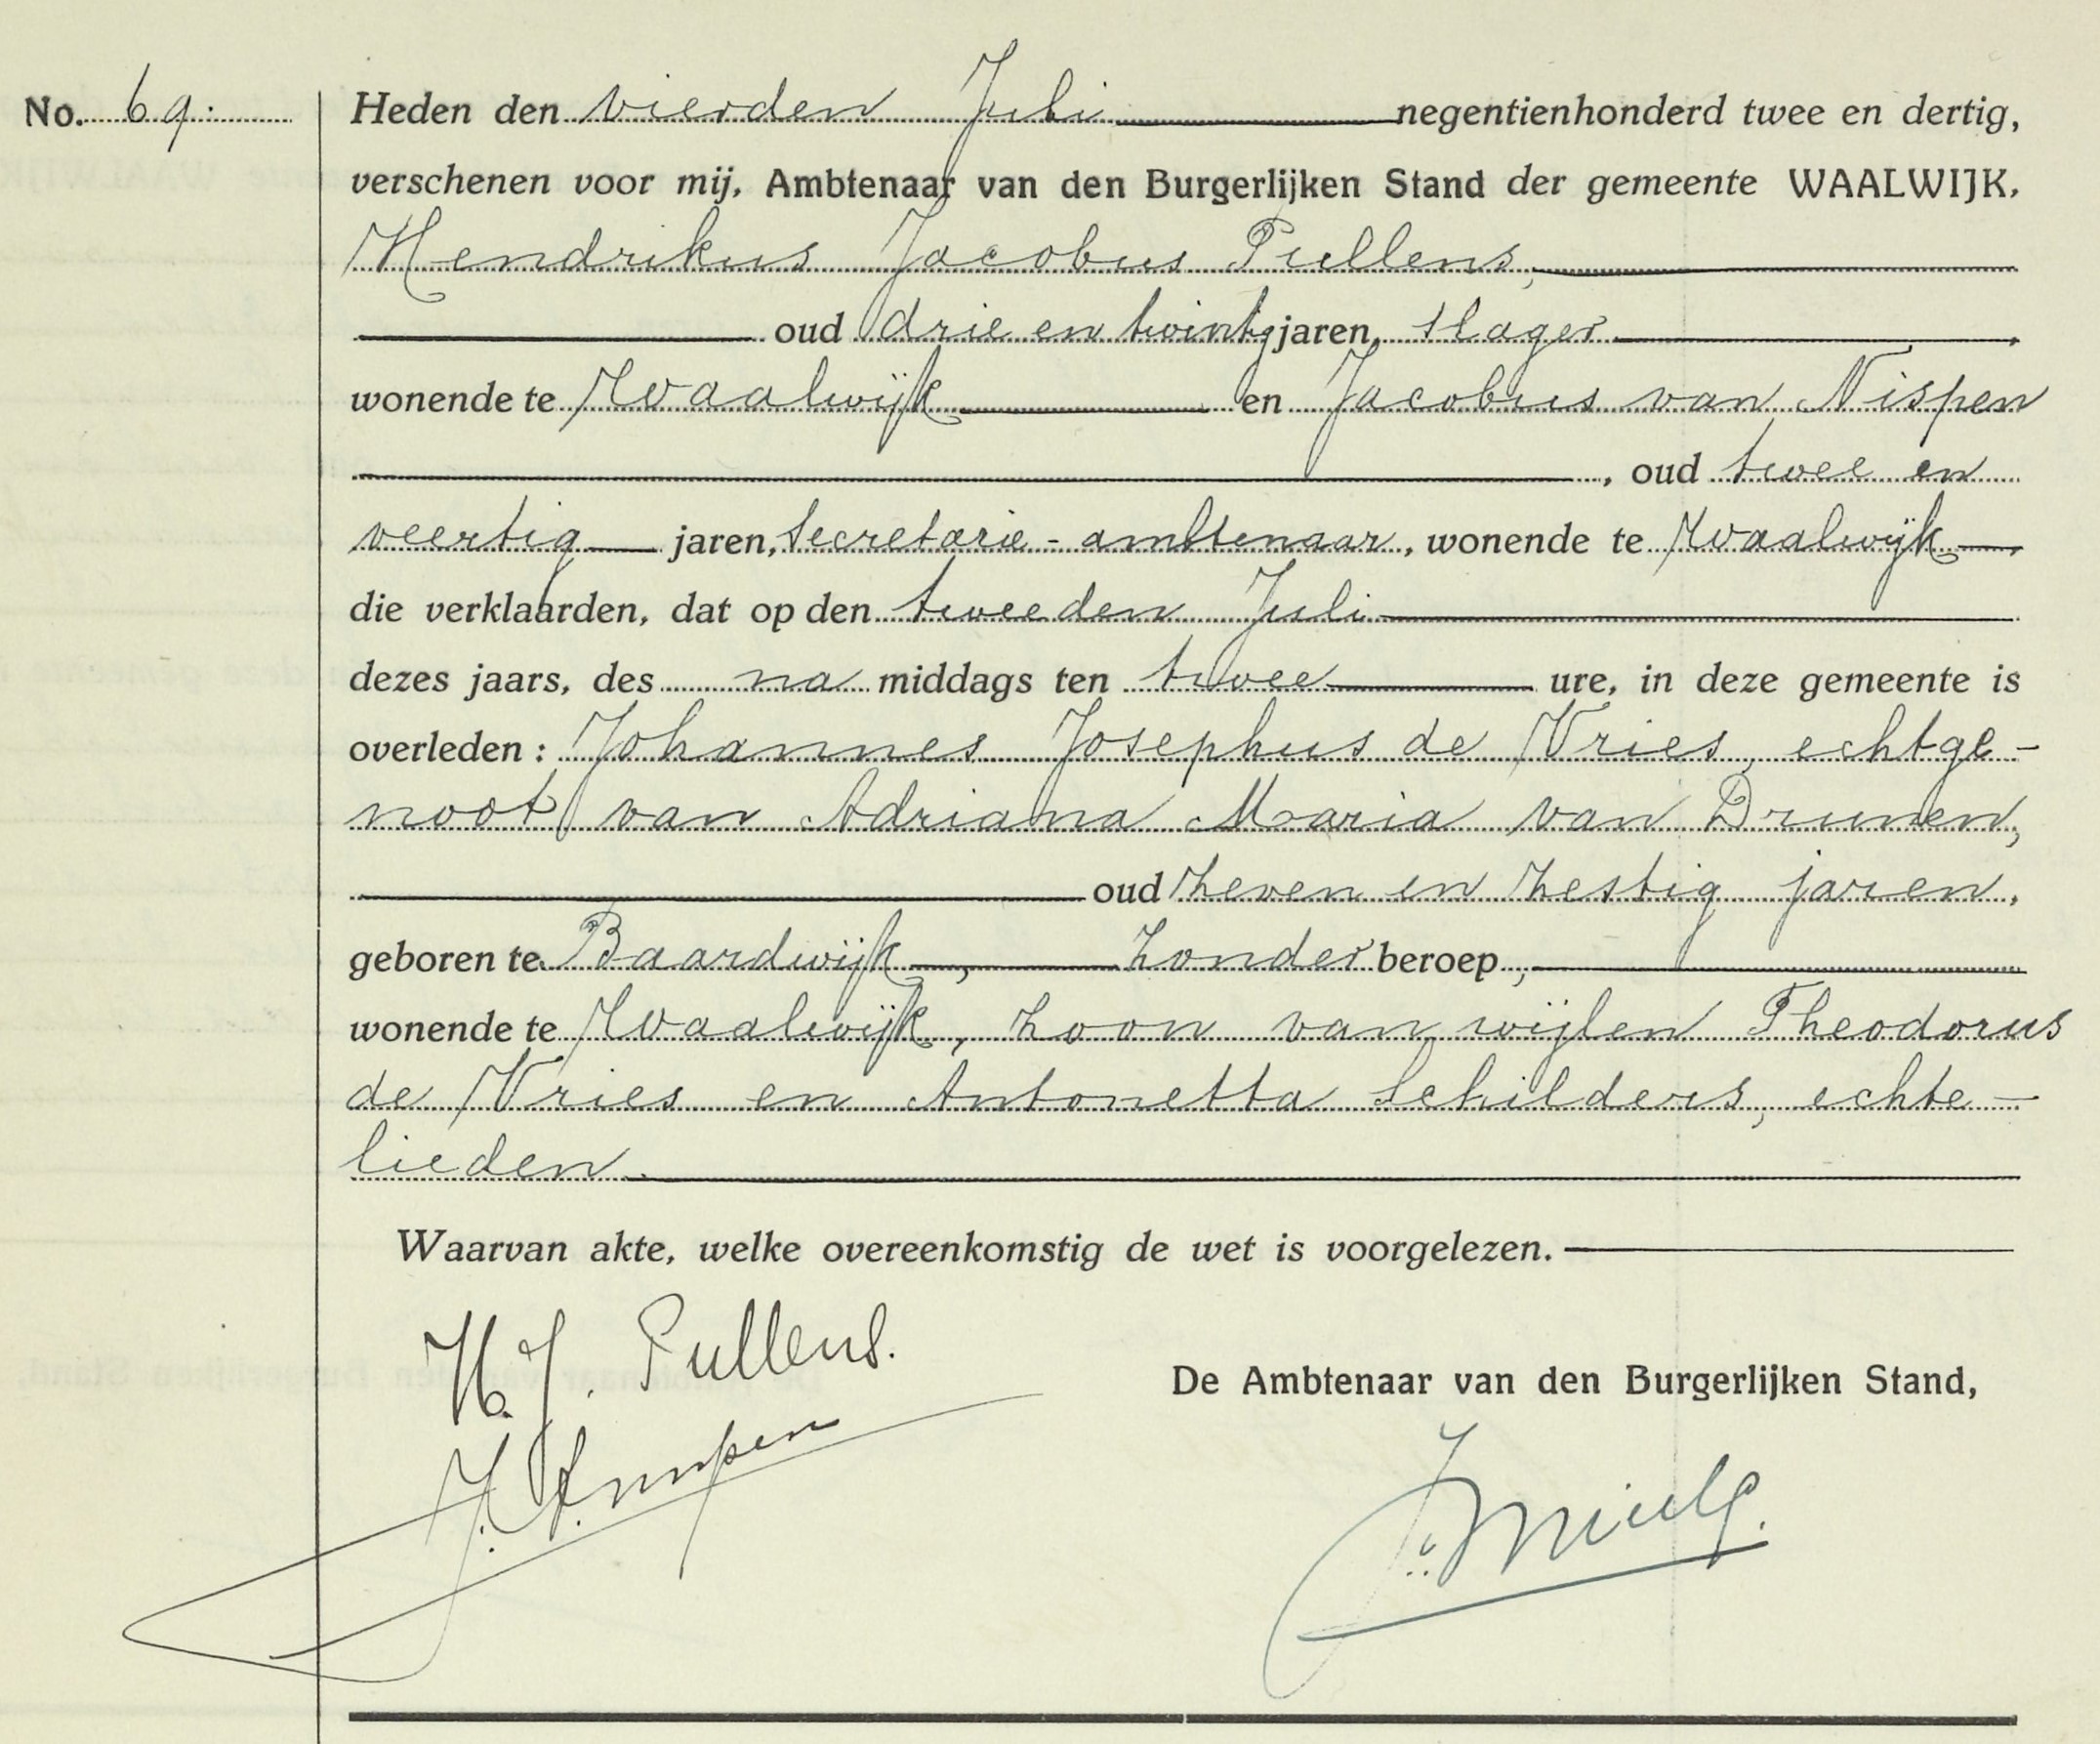 No. 69.
Heden den vierden Juli negentienhonderd twee en dertig,
verschenen voor mij, Ambtenaar van den Burgerlijken Stand der gemeente WAALWIJK,
Hendrikus Jacobus Pullens,
oud drie en twintig jaren, slager,
wonende te Waalwijk en Jacobus van Nispen
, oud twee en
veertig jaren, secretarie-ambtenaar, wonende te Waalwijk,
die verklaarden, dat op den tweeden Juli
dezes jaars, des na middags ten twee ure, in deze gemeente is
overleden: Johannes Josephus de Vries, echtge-
noot van Adriana Maria van Drunen,
oud zeven en zestig jaren,
geboren te Baardwijk, zonder beroep,
wonende te Waalwijk, zoon van wijlen Theodorus
de Vries en Antonetta Schilders, echte-
lieden.
Waarvan akte, welke overeenkomstig de wet is voorgelezen.
H. J. Pullens.
De Ambtenaar van den Burgerlijken Stand,